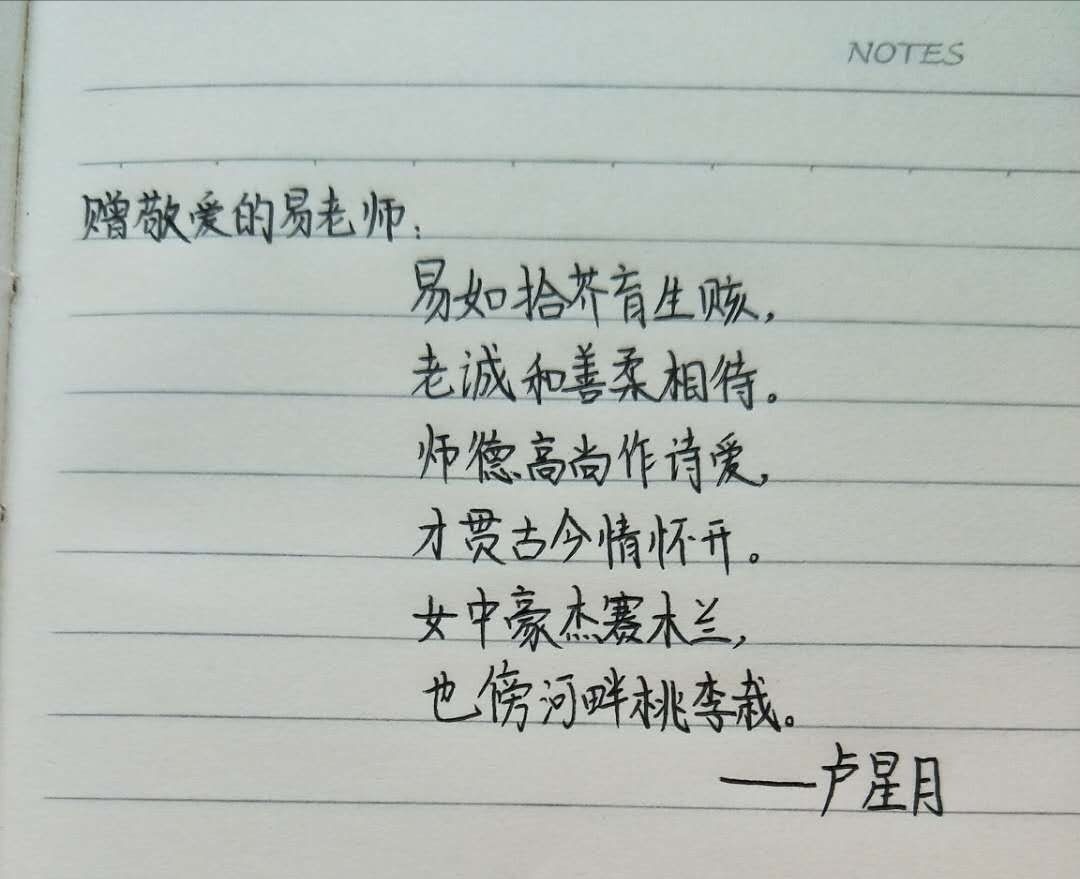 NOTES
赠敬爱的易老师:
易如拾芥育生赅,
老诚和善柔相待。
师德高尚作诗爱,
才贯古今情怀开。
女中豪杰赛木兰,
也傍河畔桃李栽。
——卢星月